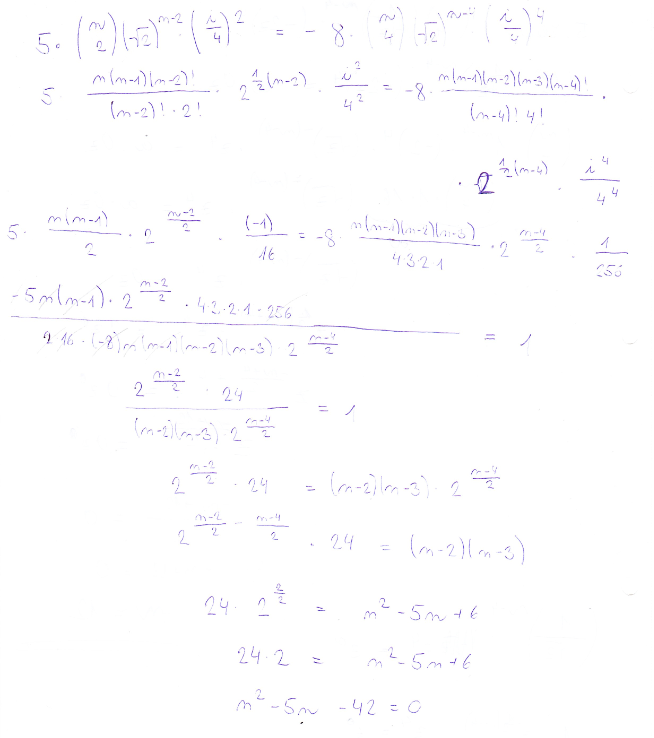 5 · (n 2) (√2)^{n-2} · (i/4)^2 = - 8 · (n 4) (√2)^{n-4} (i/4)^4
5 · n(n-1)(n-2)! / (n-2)! · 2! · 2^{1/2(n-2)} · i^2/4^2 = -8 · n(n-1)(n-2)(n-3)(n-4)! / (n-4)! 4! ·
· 2^{1/2(n-4)} · i^4/4^4
5 · n(n-1)/2 · 2^{(n-2)/2} · (-1)/16 = -8 · n(n-1)(n-2)(n-3)/4 3 2 1 · 2^{(n-4)/2} · 1/256
-5n(n-1) · 2^{(n-2)/2} · 4 3 · 2 · 1 · 256 / 2 · 16 · (-8) n(n-1)(n-2)(n-3) · 2^{(n-4)/2} = 1
2^{(n-2)/2} · 24 / (n-2)(n-3) · 2^{(n-4)/2} = 1
2^{(n-2)/2} · 24 = (n-2)(n-3) · 2^{(n-4)/2}
2^{(n-2)/2 - (n-4)/2} · 24 = (n-2)(n-3)
24 · 2^{2/2} = n^2 - 5n + 6
24 · 2 = n^2 - 5n + 6
n^2 - 5n - 42 = 0